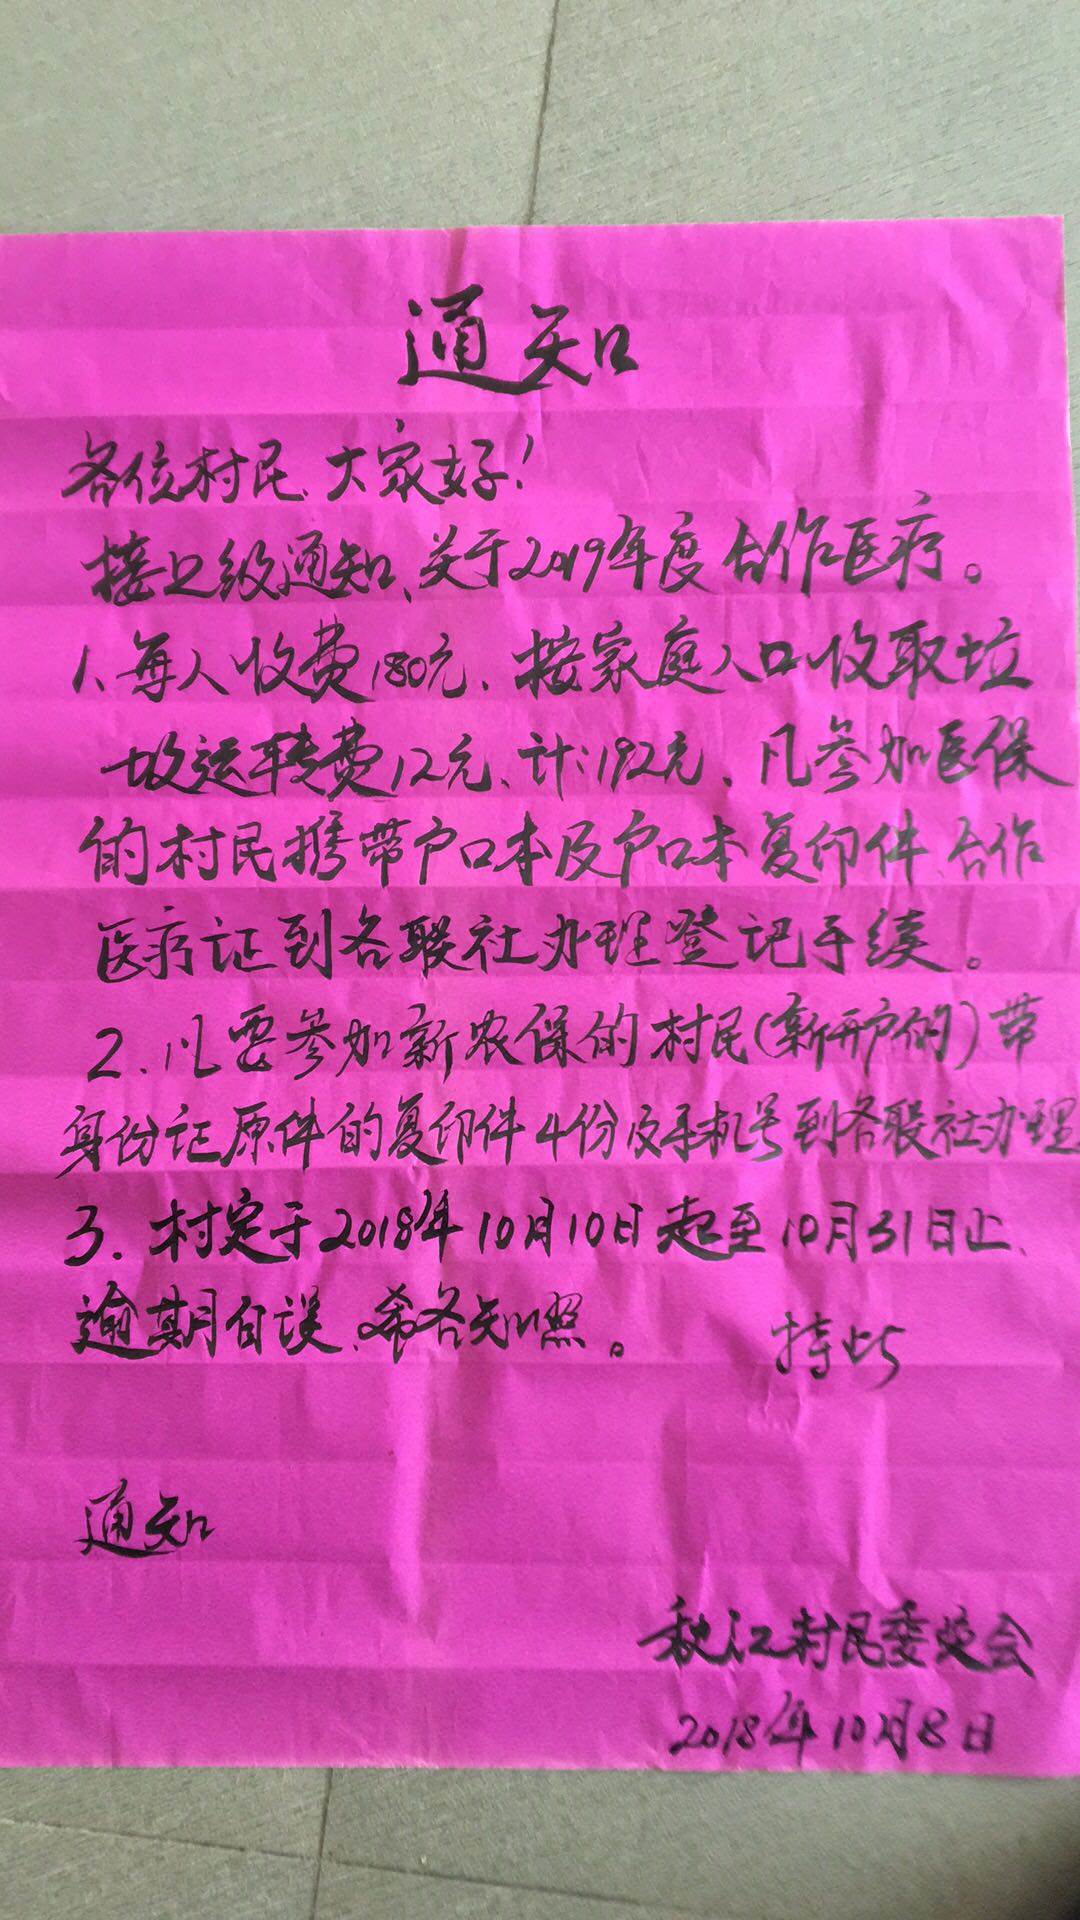 通知
各位村民、大家好！
接上级通知、关于2019年度合作医疗。
1、每人收费180元、按家庭人口收取垃
圾运转费12元、计：192元、凡参加医保
的村民携带户口本及户口本复印件、合作
医疗证到各联社办理登记手续。
2、凡要参加新农保的村民（新开户的）带
身份证原件的复印件4份及手机号到各联社办理。
3、村定于2018年10月10日起至10月31日止、
逾期自误、希各知照。 特此
通知
秋江村民委员会
2018年10月8日